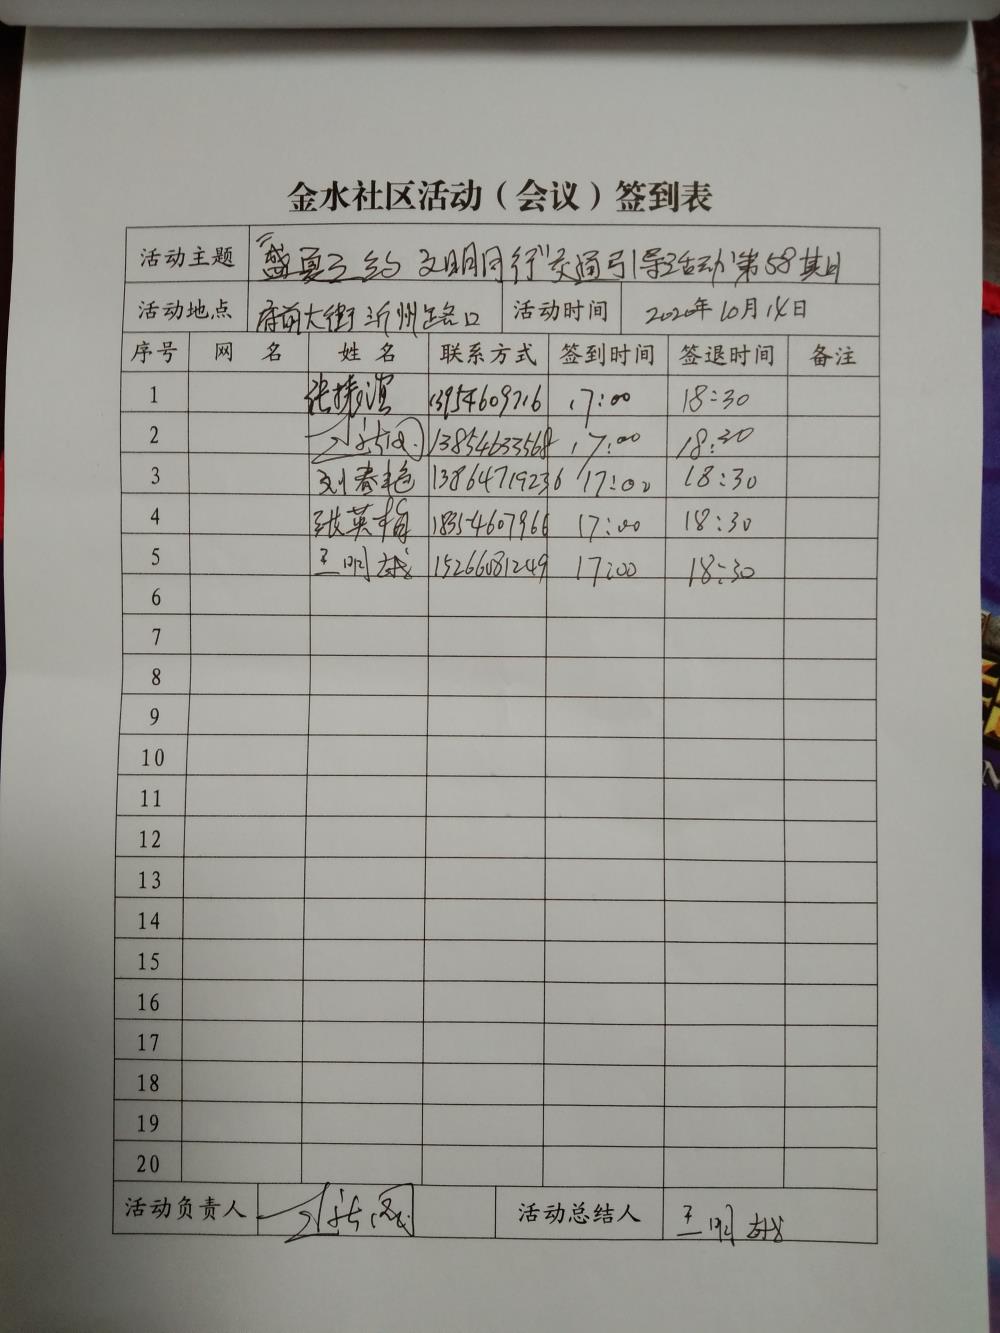 金水社区活动（会议）签到表
活动主题 “盛夏之约 文明同行”交通引导活动第58期
活动地点 府前大街沂州路口 活动时间 2020年10月14日
序号 网 名 姓 名 联系方式 签到时间 签退时间 备注
1 张 13954609716 17:00 18:30
2 13854633568 17:00 18:30
3 刘春艳 13864719236 17:00 18:30
4 张英梅 18354607966 17:00 18:30
5 王明越 15266081249 17:00 18:30
6
7
8
9
10
11
12
13
14
15
16
17
18
19
20
活动负责人 活动总结人 王明越